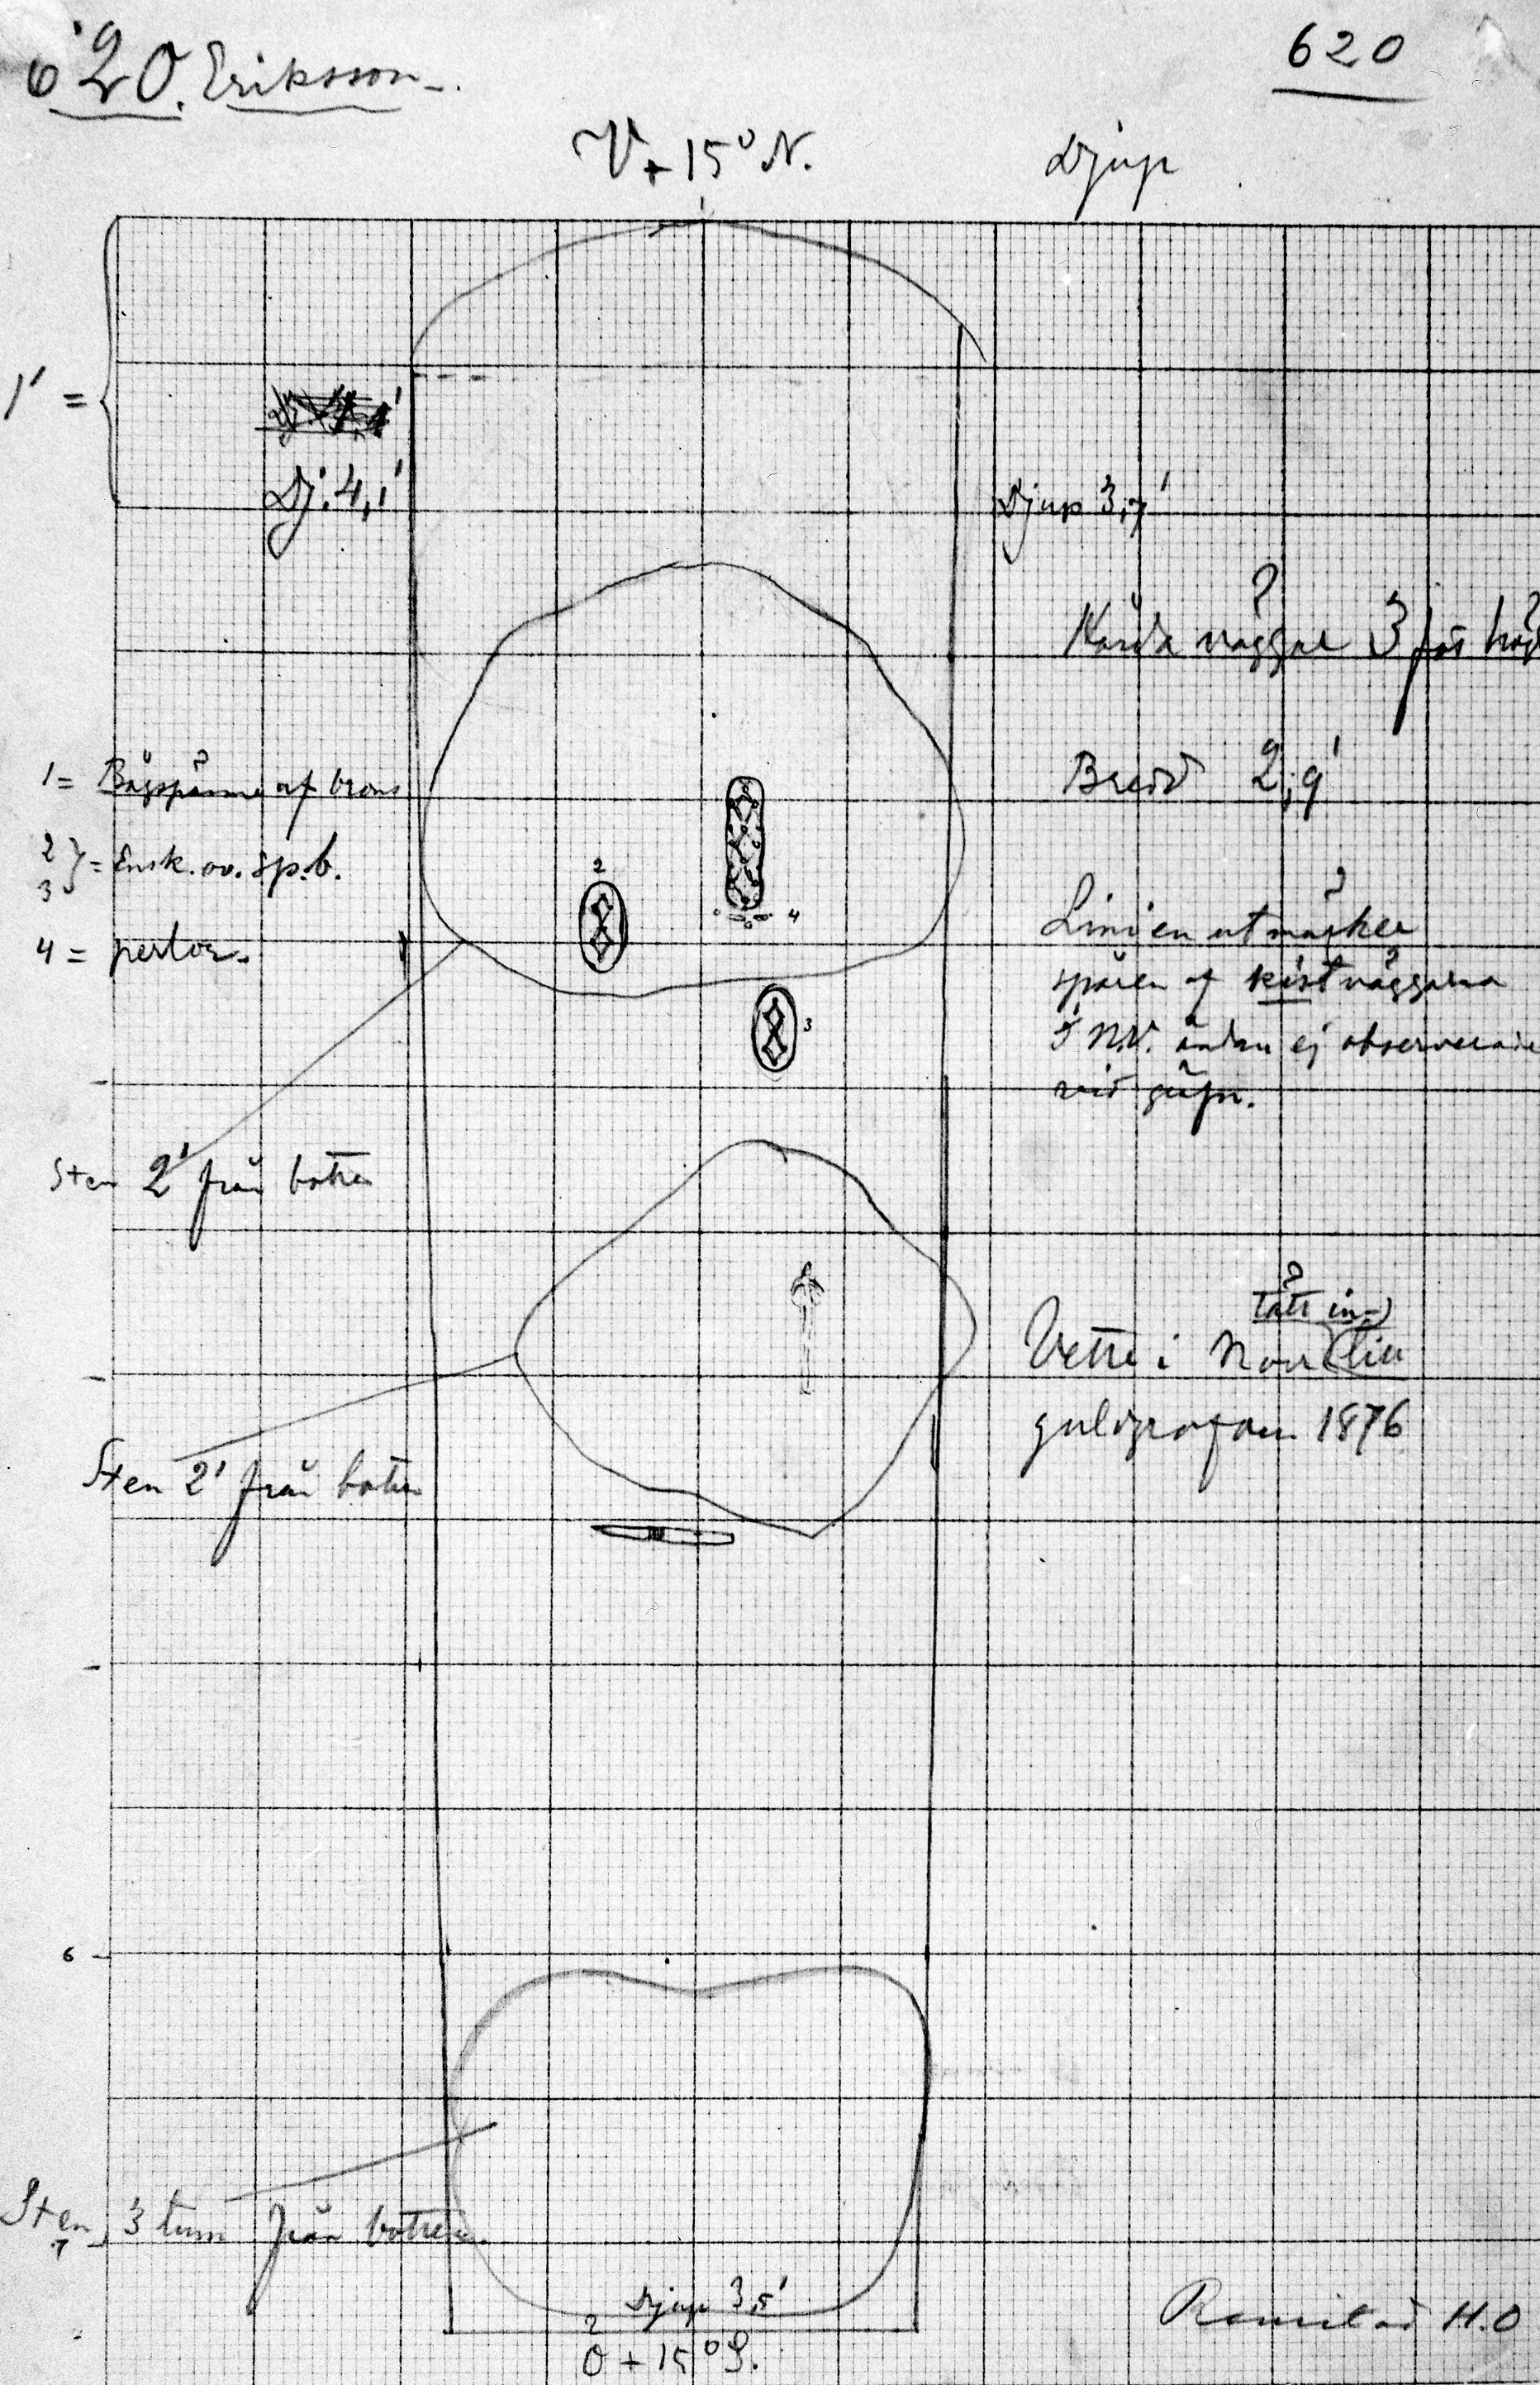 620. Eriksson.
620
V + 15° N.
Djup
1' =
Dj. 4,1'
Djup 3,7'
Hårda väggar 3 fot
Bredd 2,9'
1 = Bågspänne af brons
2
3 } = Ensk. ov. sp.b.
4 = perlor.
2
4
3
Linien utmärker
spåren af kistväggarna
I N.V. ändan ej
vid gräfn.
Sten 2' från botten
tätt in-
guldgrafven 1876
Sten 2' från botten
6
Sten 3 tum från botten
7
Djup 3,5'
O + 15° S.
H.O